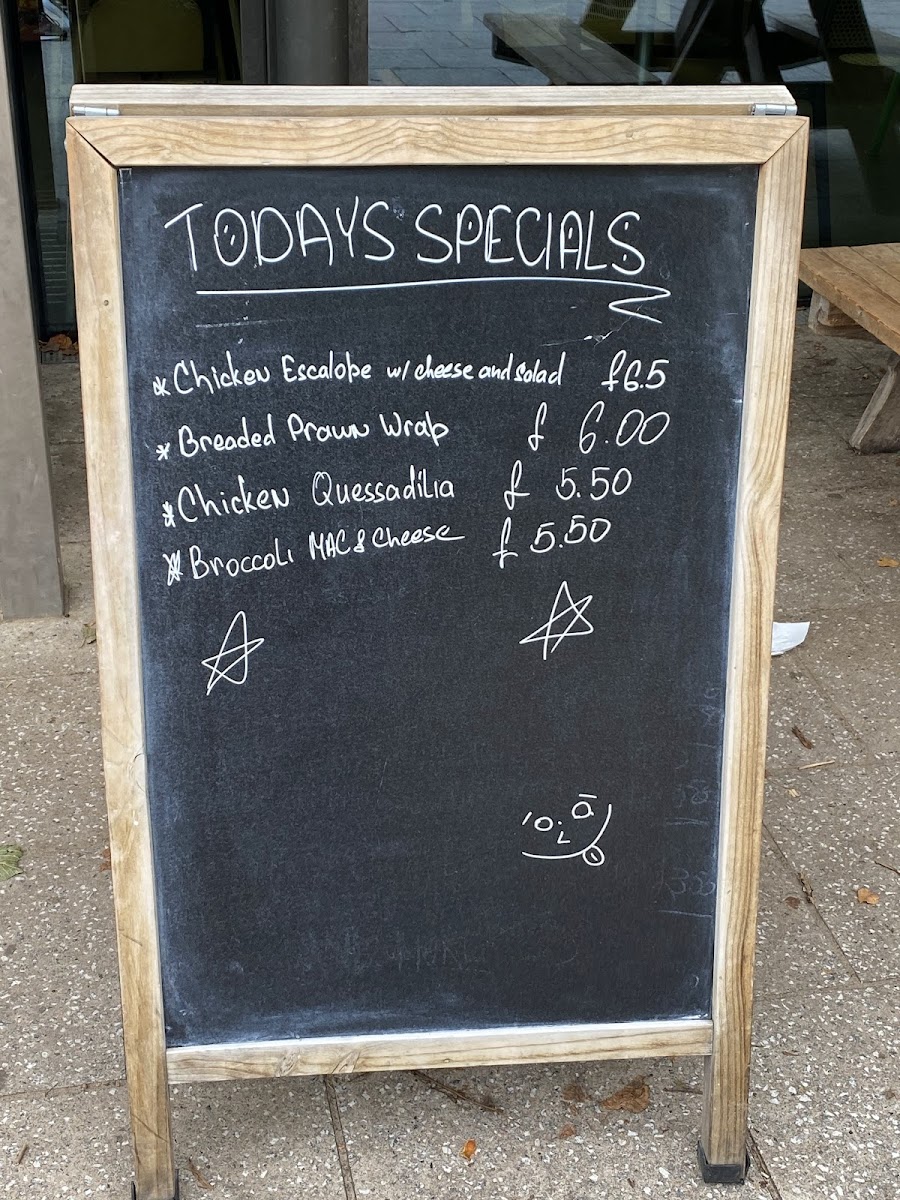 TODAYS SPECIALS
* Chicken Escalope w/ cheese and salad £6.5
* Breaded Prawn Wrap £ 6.00
* Chicken Quessadilia £ 5.50
* Broccoli MAC & Cheese £ 5.50